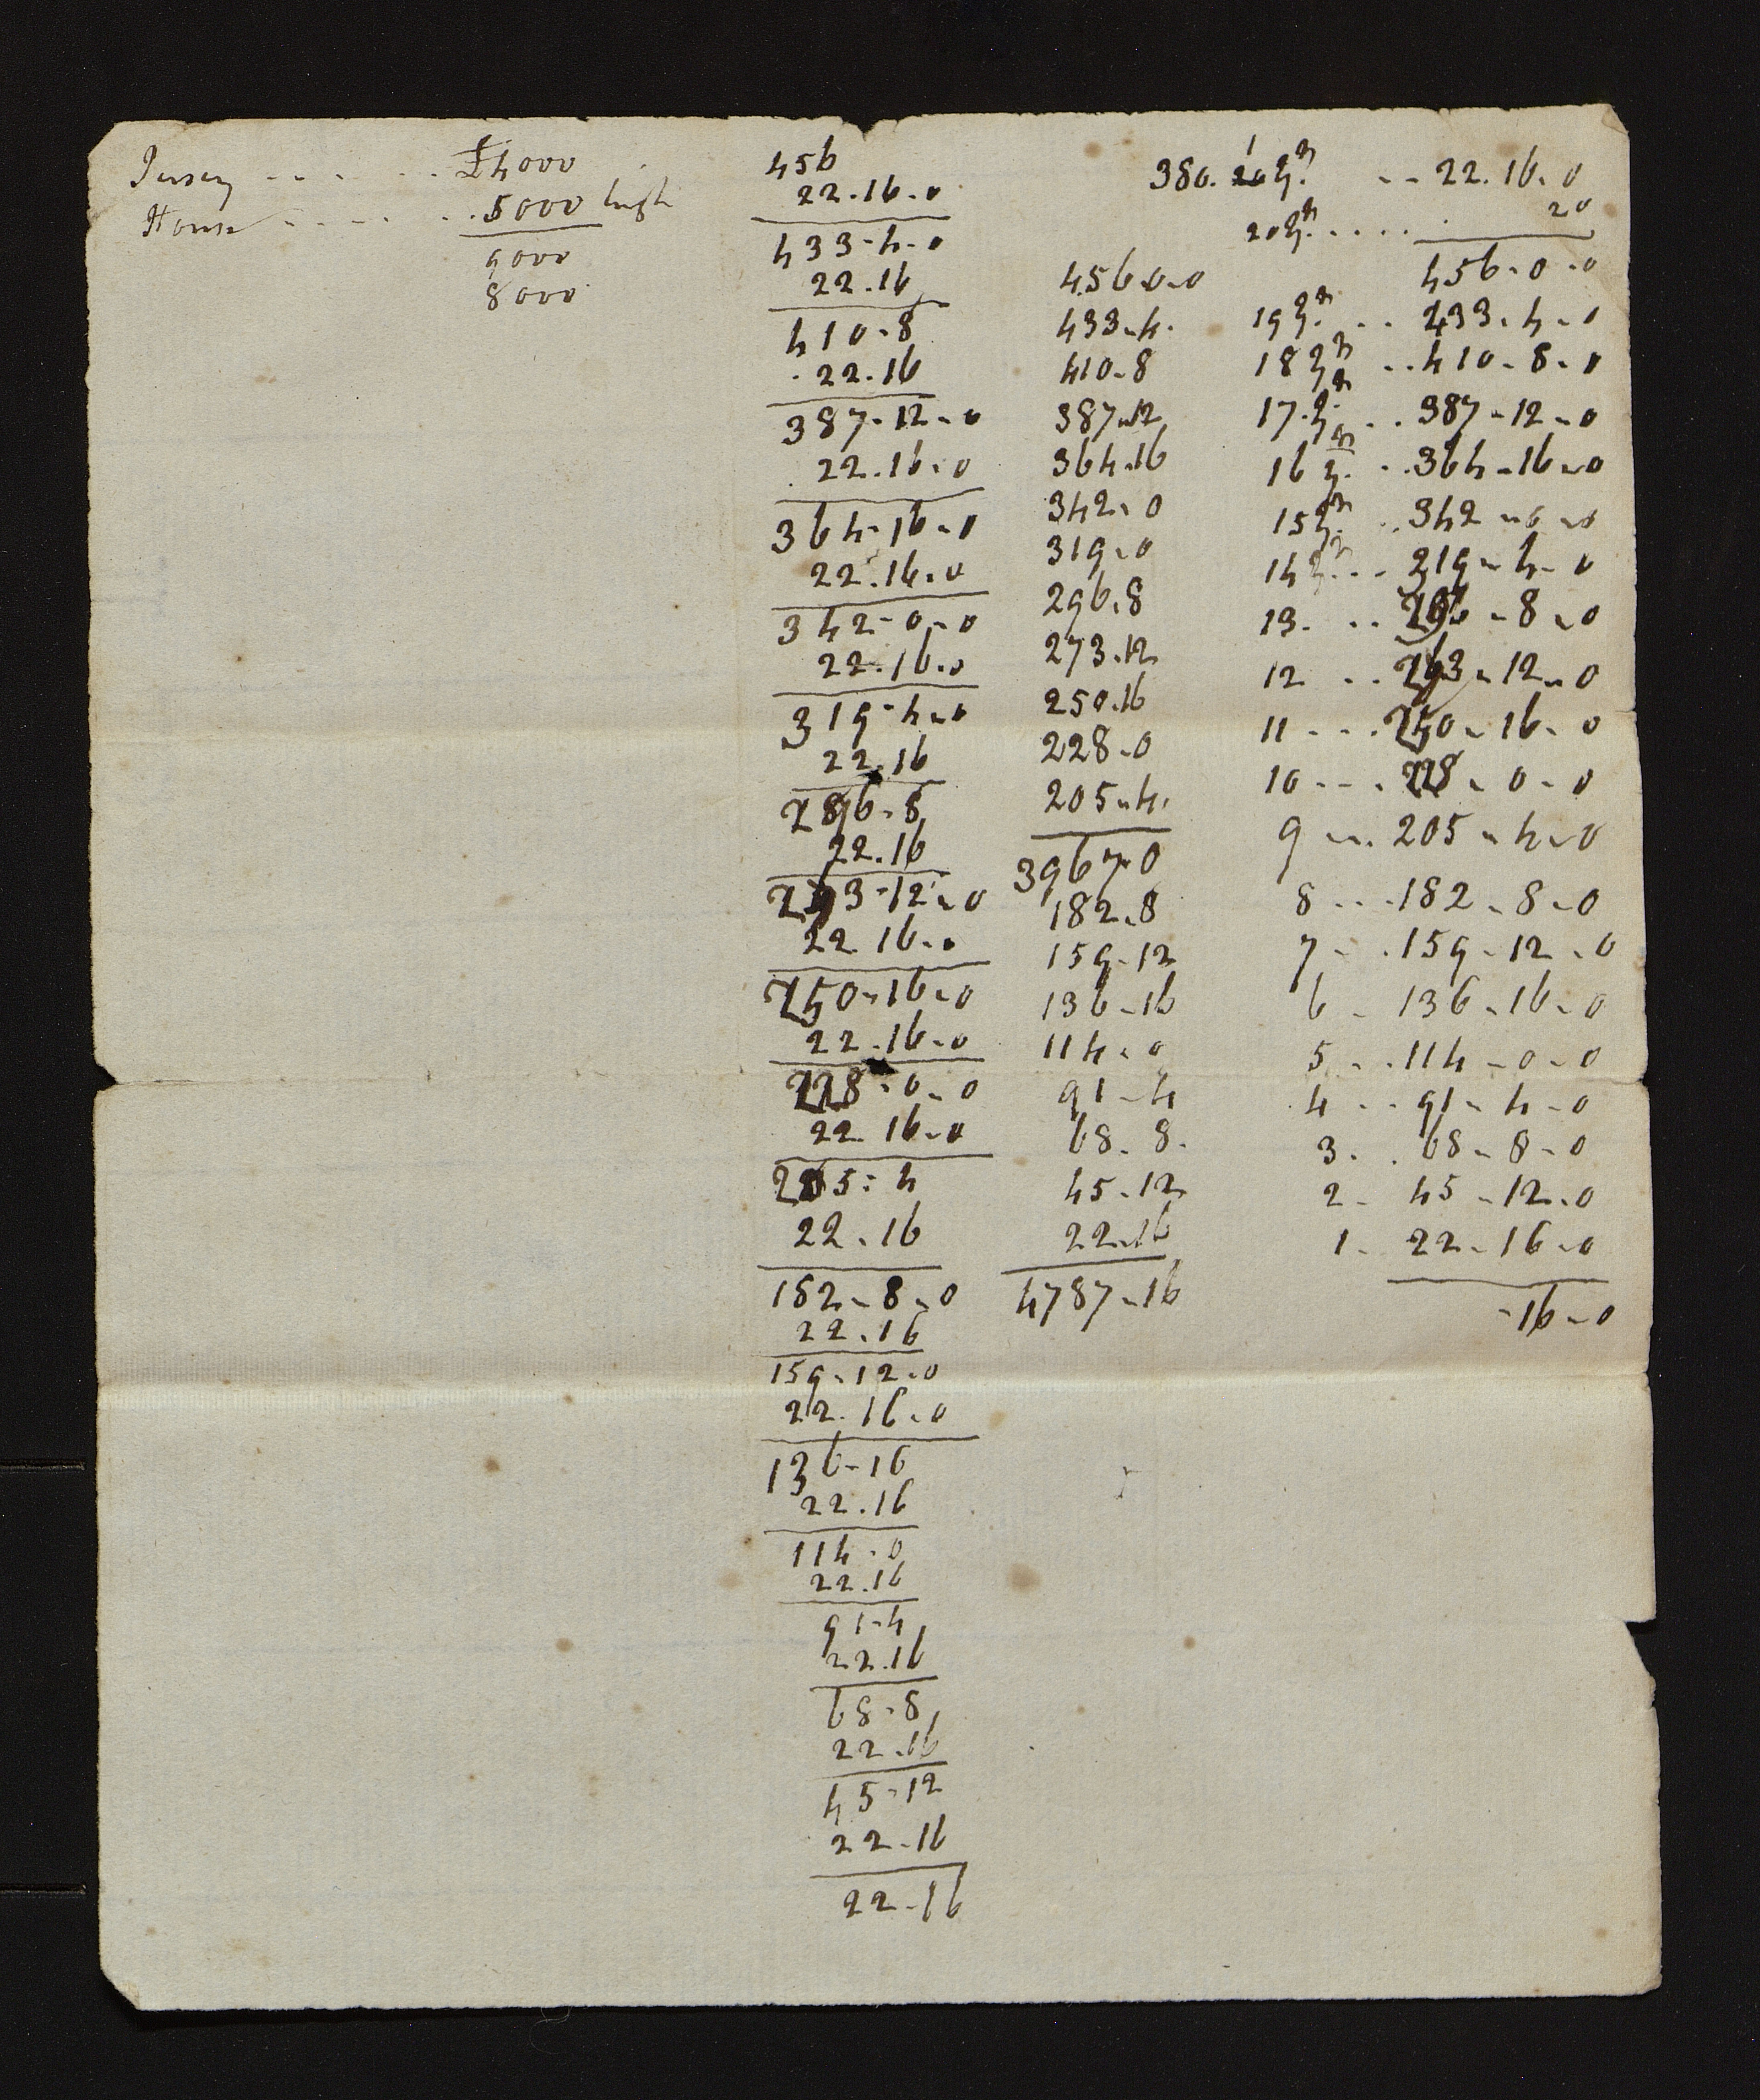 Jersey - - - - - - £4000
House - - - - - - 5000 high
9000
8000
456
22.16.0
433-4-0
22.16
410-8
22.16
387-12-0
22.16.0
364-16-0
22.16.0
342-0-0
22.16.0
319-4-0
22.16
296-8
22.16
273-12-0
22.16.0
250-16-0
22.16-0
228-0-0
22.16-0
205-4
22.16
182-8-0
22.16
159-12-0
22.16.0
136-16
22.16
114-0
22.16
91-4
22.16
68-8
22.16
45-12
22-16
22-16
456-0-0
433-4
410-8
387-12
364.16
342-0
319-0
296.8
273.12
250.16
228-0
205-4
3967-0
182.8
159-12
136-16
114-0
91-4
68-8
45-12
22-16
4787-16
380. 1 - - 22.16.0
20
20 . . . . .
456-0-0
19 . . 433-4-0
18 . . 410-8-0
17 . . 387-12-0
16 . . 364-16-0
15 . . 342-0-0
14 . . 319-4-0
13 . . . 296-8-0
12 . . . 273-12-0
11 - - . 250-16-0
10 - - . 228-0-0
9 - . . 205-4-0
8 - - . 182-8-0
7 - . 159-12-0
6 - 136-16-0
5 - . . 114-0-0
4 - - 91-4-0
3 . . 68-8-0
2 - 45-12-0
1 - 22-16-0
-16-0